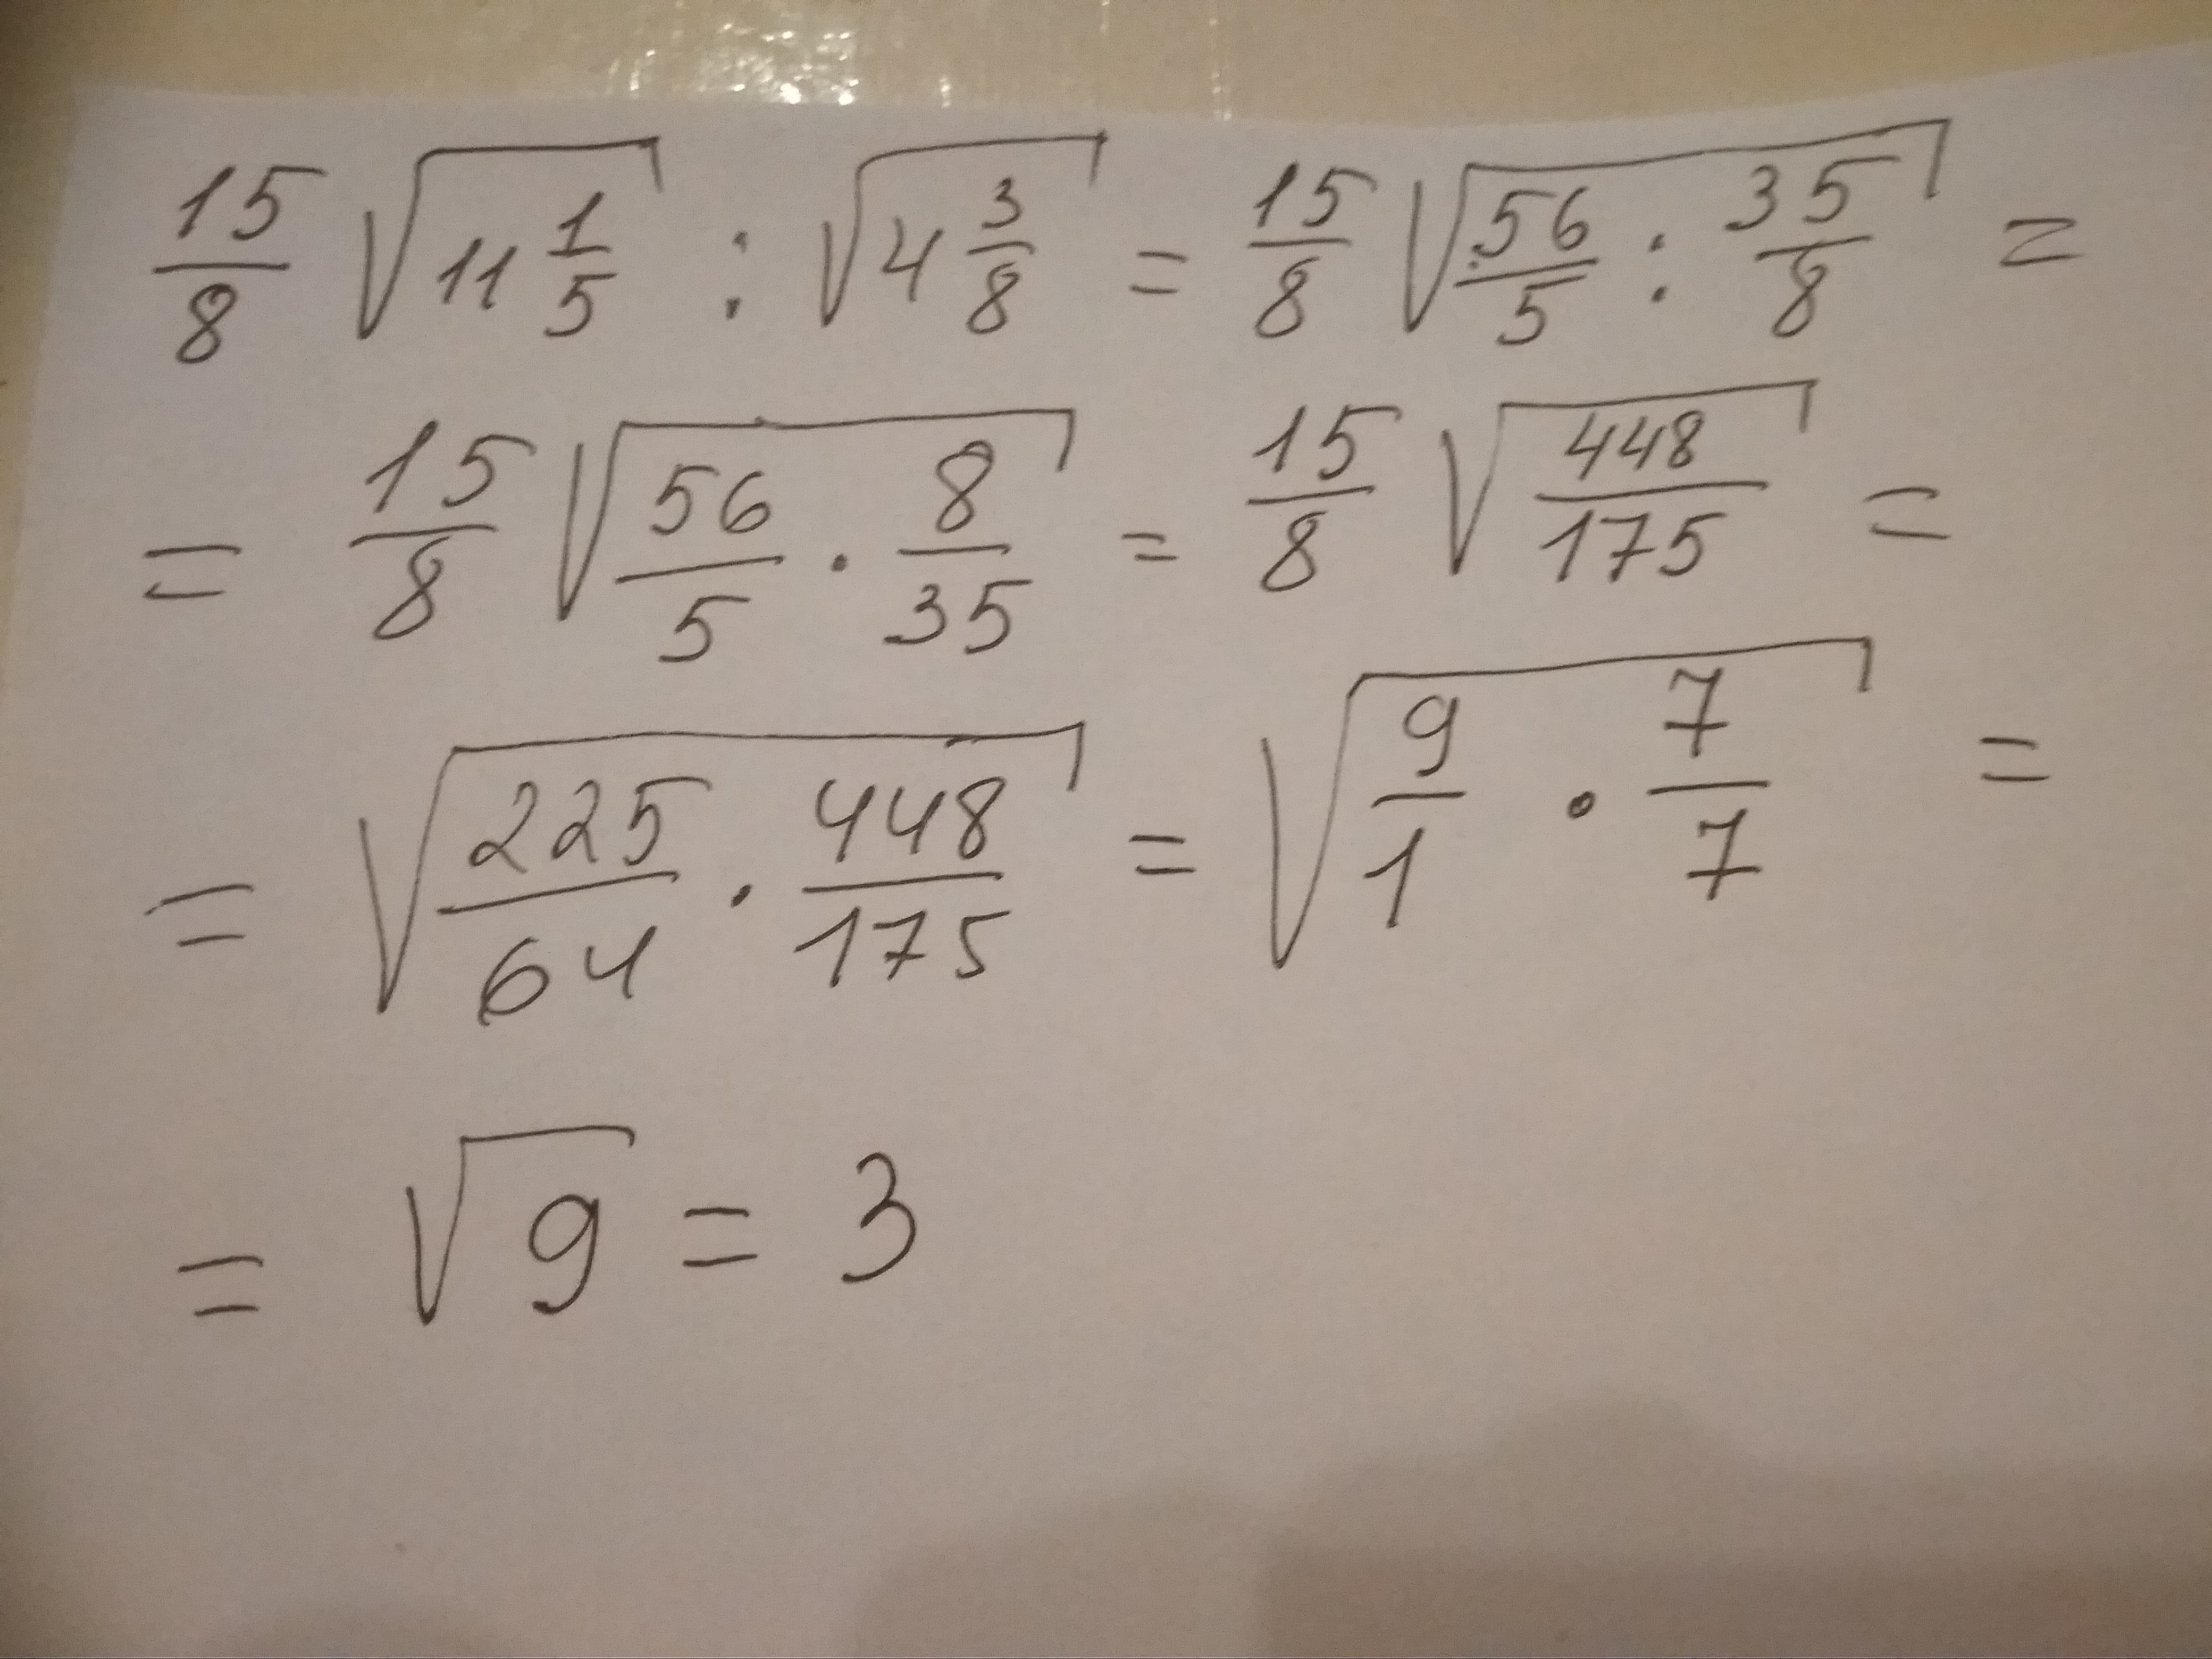 15/8 √(11 1/5) : √(4 3/8) = 15/8 √(56/5 : 35/8) =
= 15/8 √(56/5 · 8/35) = 15/8 √(448/175) =
= √(225/64 · 448/175) = √(9/1 · 7/7) =
= √9 = 3